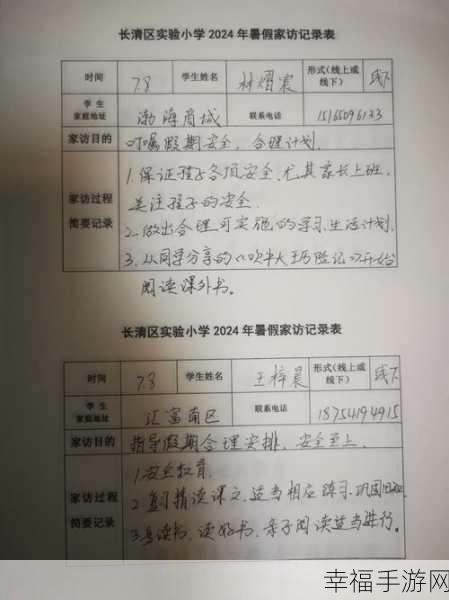 长清区实验小学 2024 年暑假家访记录表
时间 7.8 学生姓名 林熠宸 形式(线上或线下) 线下
学生家庭地址 渤海商城 联系电话 15165096133
家访目的 叮嘱假期安全,合理计划.
家访过程简要记录 1.保证孩子各项安全.尤其家长上班,
关注孩子的安全.
2.做出合理可实施的学习.生活计划.
3.从同学分享的《吹牛大王历险记》开始
阅读课外书。
长清区实验小学 2024 年暑假家访记录表
时间 7.8 学生姓名 王梓晨 形式(线上或线下) 线下
学生家庭地址 汇富南区 联系电话 18754194915
家访目的 指导假期合理安排,安全至上.
家访过程简要记录 1.安全教育.
2.复习精读课文,适当相应练习.巩固
3.多读书.读好书.亲子阅读适当进行。
幸福手游网